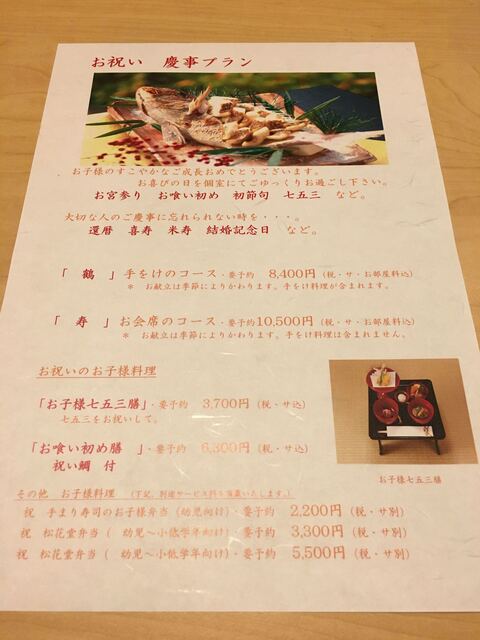 お祝い 慶事プラン
お子様のすこやかなご成長おめでとうございます。
お喜びの日を個室にてごゆっくりお過ごし下さい。
お宮参り お喰い初め 初節句 七五三 など。
大切な人のご慶事に忘れられない時を・・・。
還暦 喜寿 米寿 結婚記念日 など。
「 鶴 」手をけのコース・要予約 8,400円（税・サ・お部屋料込）
＊ お献立は季節によりかわります。手をけ料理が含まれます。
「 寿 」お会席のコース・要予約10,500円（税・サ・お部屋料込）
＊ お献立は季節によりかわります。手をけ料理は含まれません。
お祝いのお子様料理
「お子様七五三膳」・要予約 3,700円（税・サ込）
七五三をお祝いして。
「お喰い初め膳 」・要予約 6,300円（税・サ込）
祝い鯛 付
お子様七五三膳
その他 お子様料理 （下記、別途サービス料を頂戴いたします。）
祝 手まり寿司のお子様弁当（幼児向け）・要予約 2,200円（税・サ別）
祝 松花堂弁当（ 幼児～小低学年向け）・要予約 3,300円（税・サ別）
祝 松花堂弁当（ 幼児～小低学年向け）・要予約 5,500円（税・サ別）